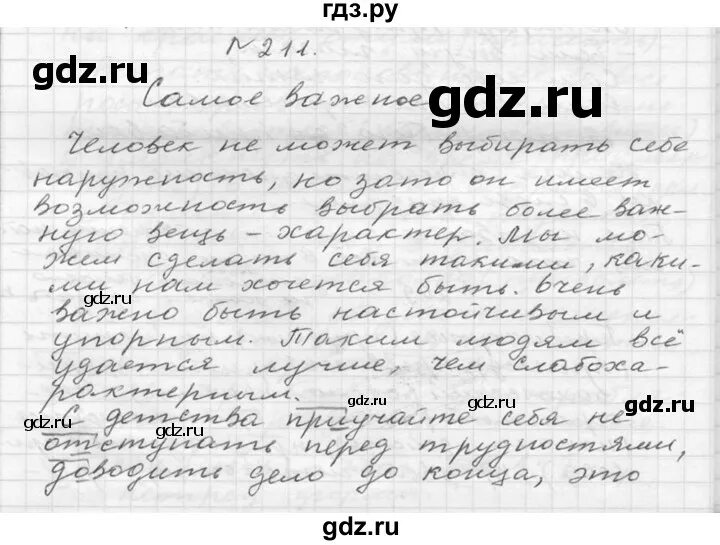 гдз.ру
№ 211.
gdz.ru
Самое важное
gdz.ru
Человек не может выбирать себе
наружность, но зато он имеет
возможность выбрать более важ-
ную вещь - характер. Мы мо-
жем сделать себя такими, каки-
ми нам хочется быть. Очень
gdz.ru
gdz.ru
важно быть настойчивым и
упорным. Таким людям всё
удается лучше, чем слабоха-
рактерным.
gdz.ru
gdz.ru
С детства приучайте себя не
gdz.ru
gdz.ru
отступать перед трудностями,
доводить дело до конца, это
gdz.ru